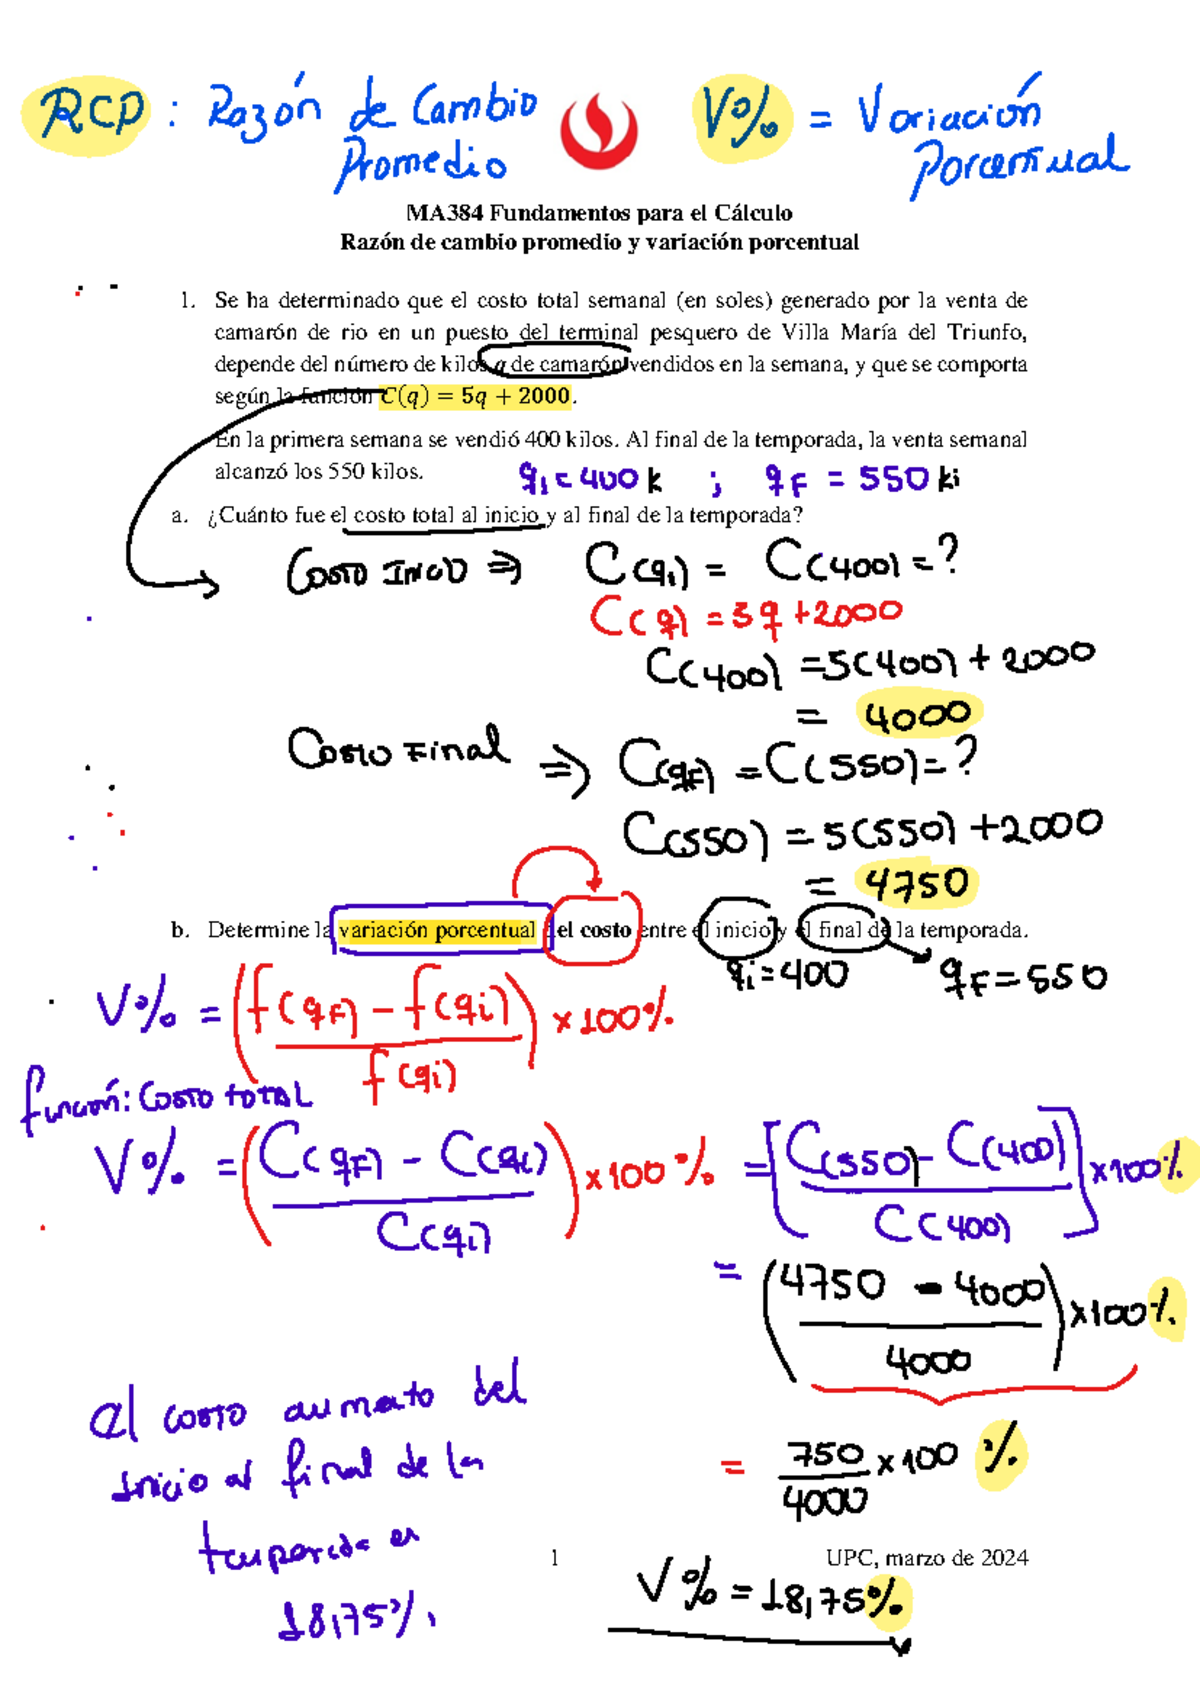 RCP : Razón de Cambio Promedio
V% = Variación Porcentual
MA384 Fundamentos para el Cálculo
Razón de cambio promedio y variación porcentual
1. Se ha determinado que el costo total semanal (en soles) generado por la venta de
camarón de rio en un puesto del terminal pesquero de Villa María del Triunfo,
depende del número de kilos q de camarón vendidos en la semana, y que se comporta
según la función C(q) = 5q + 2000.
En la primera semana se vendió 400 kilos. Al final de la temporada, la venta semanal
alcanzó los 550 kilos.
qi = 400 k ; qF = 550 ki
a. ¿Cuánto fue el costo total al inicio y al final de la temporada?
Costo Inicio ⇒ C(qi) = C(400) = ?
C(q) = 5q + 2000
C(400) = 5(400) + 2000
= 4000
Costo Final ⇒ C(qF) = C(550) = ?
C(550) = 5(550) + 2000
= 4750
b. Determine la variación porcentual del costo entre el inicio y el final de la temporada.
qi = 400 qF = 550
V% = (f(qF) - f(qi) / f(qi)) x 100%
función: Costo total
V% = (C(qF) - C(qi) / C(qi)) x 100% = [C(550) - C(400) / C(400)] x 100%
= (4750 - 4000 / 4000) x 100%
= 750/4000 x 100 %
el costo aumento del
Inicio al final de la
temporada en
18,75%.
1 UPC, marzo de 2024
V% = 18,75%